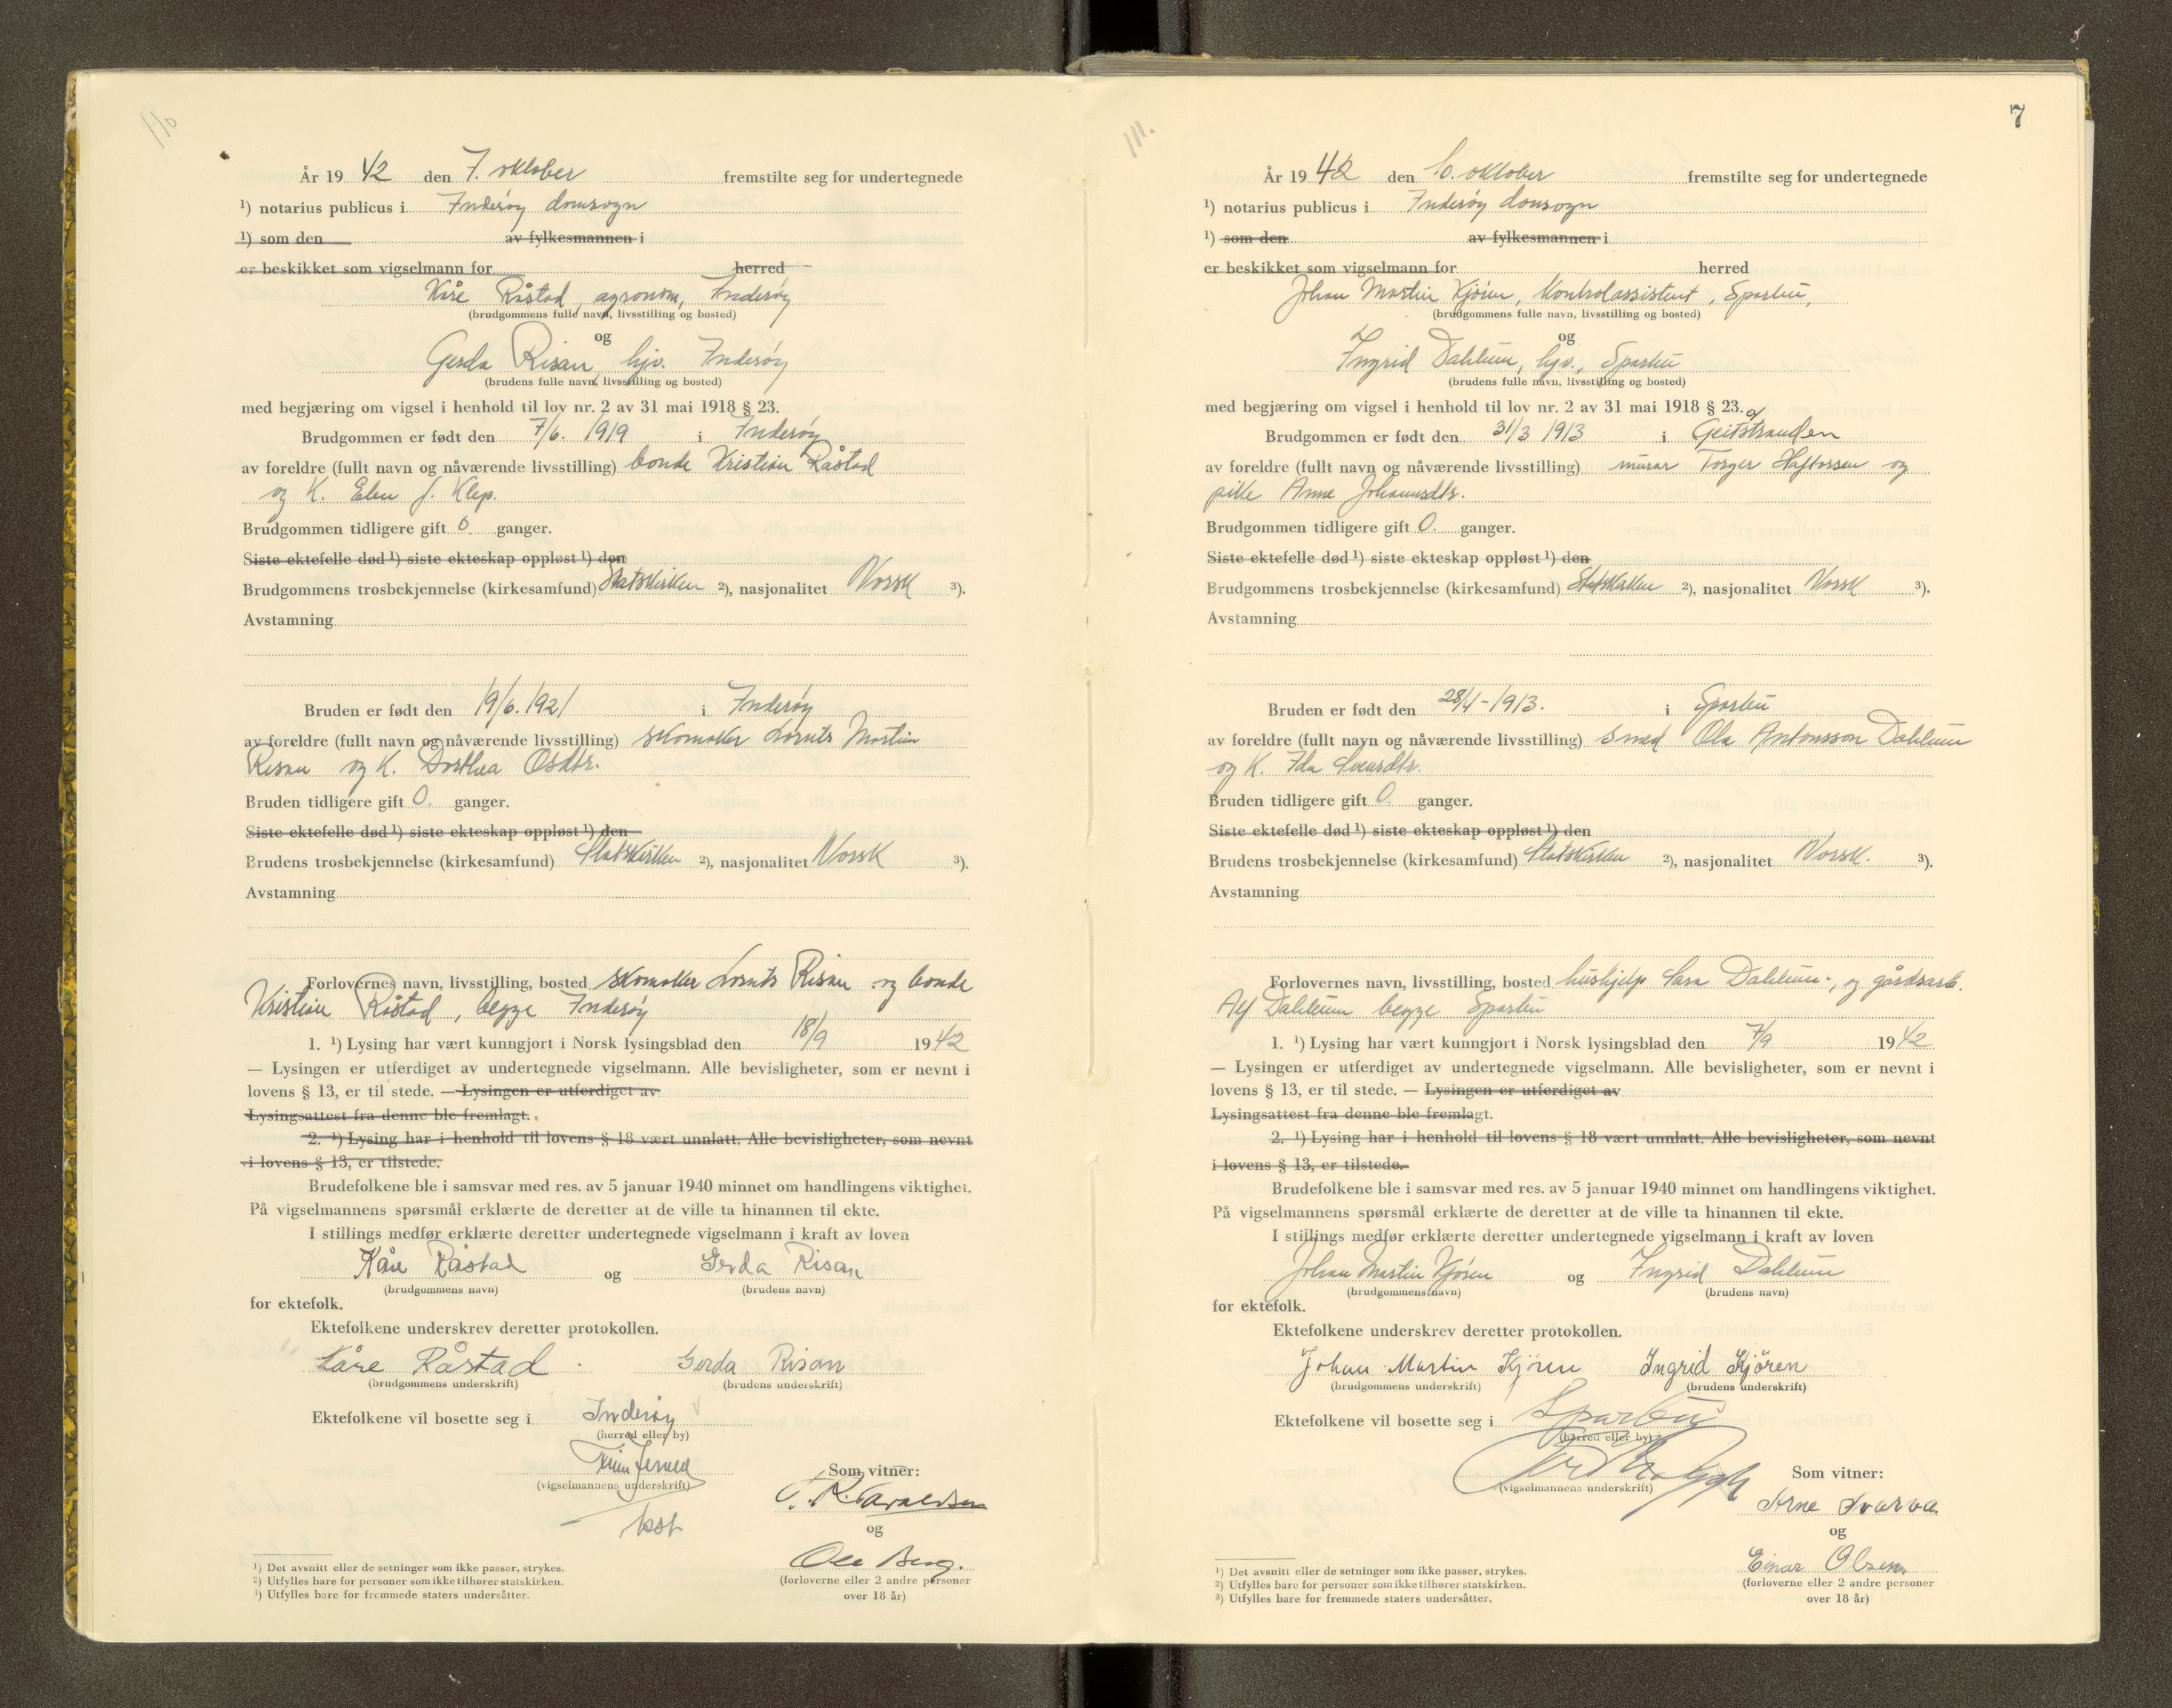 110
År 19 42 den 7. oktober fremstilte seg for undertegnede
¹) notarius publicus i Inderøy domsogn
¹) som den av fylkesmannen i
er beskikket som vigselmann for herred
Kåre Råstad, agronom, Inderøy
(brudgommens fulle navn, livsstilling og bosted)
og
Gerda Risan, hjv. Inderøy
(brudens fulle navn, livsstilling og bosted)
med begjæring om vigsel i henhold til lov nr. 2 av 31 mai 1918 § 23.
Brudgommen er født den 7/6. 1919 i Inderøy
av foreldre (fullt navn og nåværende livsstilling) bonde Kristian Råstad
og K. Elen f. Klep.
Brudgommen tidligere gift 0 ganger.
Siste ektefelle død ¹) siste ekteskap oppløst ¹) den
Brudgommens trosbekjennelse (kirkesamfund) Statskirken ²), nasjonalitet Norsk ³).
Avstamning
Bruden er født den 19/6. 1921 i Inderøy
av foreldre (fullt navn og nåværende livsstilling) skomaker Lornts Martin
Risan og K. Dorthea Osdtr.
Bruden tidligere gift 0. ganger.
Siste ektefelle død ¹) siste ekteskap oppløst ¹) den
Brudens trosbekjennelse (kirkesamfund) Statskirken ²), nasjonalitet Norsk ³).
Avstamning
Forlovernes navn, livsstilling, bosted skomaker Lornts Risan og bonde
Kristian Råstad, begge Inderøy
1. ¹) Lysing har vært kunngjort i Norsk lysingsblad den 18/9 1942
— Lysingen er utferdiget av undertegnede vigselmann. Alle bevisligheter, som er nevnt i
lovens § 13, er til stede. — Lysingen er utferdiget av
Lysingsattest fra denne ble fremlagt.
2. ¹) Lysing har i henhold til lovens § 18 vært unnlatt. Alle bevisligheter, som nevnt
i lovens § 13, er tilstede.
Brudefolkene ble i samsvar med res. av 5 januar 1940 minnet om handlingens viktighet.
På vigselmannens spørsmål erklærte de deretter at de ville ta hinannen til ekte.
I stillings medfør erklærte deretter undertegnede vigselmann i kraft av loven
Kåre Råstad og Gerda Risan
(brudgommens navn) (brudens navn)
for ektefolk.
Ektefolkene underskrev deretter protokollen.
Kåre Råstad Gerda Risan
(brudgommens underskrift) (brudens underskrift)
Ektefolkene vil bosette seg i Inderøy
(herred eller by)
Som vitner:
(vigselmannens underskrift)
og
Ole Berg.
(forloverne eller 2 andre personer
over 18 år)
¹) Det avsnitt eller de setninger som ikke passer, strykes.
²) Utfylles bare for personer som ikke tilhører statskirken.
³) Utfylles bare for fremmede staters undersåtter.
7
111.
År 19 42 den 10. oktober fremstilte seg for undertegnede
¹) notarius publicus i Inderøy domsogn
¹) som den av fylkesmannen i
er beskikket som vigselmann for herred
Johan Martin Kjøren, Kontrolassistent, Sparbu,
(brudgommens fulle navn, livsstilling og bosted)
og
Ingrid Dahlum, hjv., Sparbu
(brudens fulle navn, livsstilling og bosted)
med begjæring om vigsel i henhold til lov nr. 2 av 31 mai 1918 § 23.
Brudgommen er født den 31/3 1913 i Geitstranden
av foreldre (fullt navn og nåværende livsstilling) murar Torger Haftorsen og
pike Anne Johannsdtr.
Brudgommen tidligere gift 0. ganger.
Siste ektefelle død ¹) siste ekteskap oppløst ¹) den
Brudgommens trosbekjennelse (kirkesamfund) Statskirken ²), nasjonalitet Norsk ³).
Avstamning
Bruden er født den 28/4 - 1913. i Sparbu
av foreldre (fullt navn og nåværende livsstilling) smed Ola Antonsson Dahlum
og K. Ida Svensdtr.
Bruden tidligere gift 0. ganger.
Siste ektefelle død ¹) siste ekteskap oppløst ¹) den
Brudens trosbekjennelse (kirkesamfund) Statskirken ²), nasjonalitet Norsk. ³).
Avstamning
Forlovernes navn, livsstilling, bosted hushjelp Sara Dahlum, og gårdsarb.
Alf Dahlum begge Sparbu
1. ¹) Lysing har vært kunngjort i Norsk lysingsblad den 7/9 1942
— Lysingen er utferdiget av undertegnede vigselmann. Alle bevisligheter, som er nevnt i
lovens § 13, er til stede. — Lysingen er utferdiget av
Lysingsattest fra denne ble fremlagt.
2. ¹) Lysing har i henhold til lovens § 18 vært unnlatt. Alle bevisligheter, som nevnt
i lovens § 13, er tilstede.
Brudefolkene ble i samsvar med res. av 5 januar 1940 minnet om handlingens viktighet.
På vigselmannens spørsmål erklærte de deretter at de ville ta hinannen til ekte.
I stillings medfør erklærte deretter undertegnede vigselmann i kraft av loven
Johan Martin Kjøren og Ingrid Dahlum
(brudgommens navn) (brudens navn)
for ektefolk.
Ektefolkene underskrev deretter protokollen.
Johan Martin Kjøren Ingrid Kjøren
(brudgommens underskrift) (brudens underskrift)
Ektefolkene vil bosette seg i Sparbu
(herred eller by)
Som vitner:
(vigselmannens underskrift)
Arne Svarva
og
Einar Olsen
(forloverne eller 2 andre personer
over 18 år)
¹) Det avsnitt eller de setninger som ikke passer, strykes.
²) Utfylles bare for personer som ikke tilhører statskirken.
³) Utfylles bare for fremmede staters undersåtter.